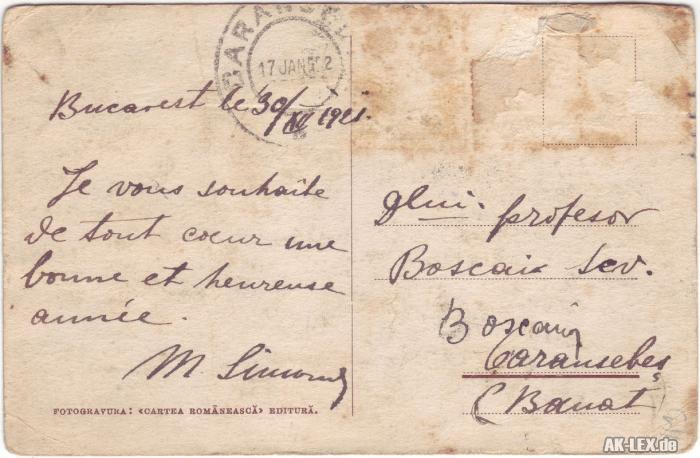 CARANSEB
17 JAN 22
Bucarest le 30/XII 1921.
Je vous souhaite
de tout coeur une
bonne et heureuse
année.
M. Simond
FOTOGRAVURA: «CARTEA ROMÂNEASCĂ» EDITURĂ.
Dlui. profesor
Boscaiu Sev.
Boscaiu
Caransebeș
(Banat
AK-LEX.de